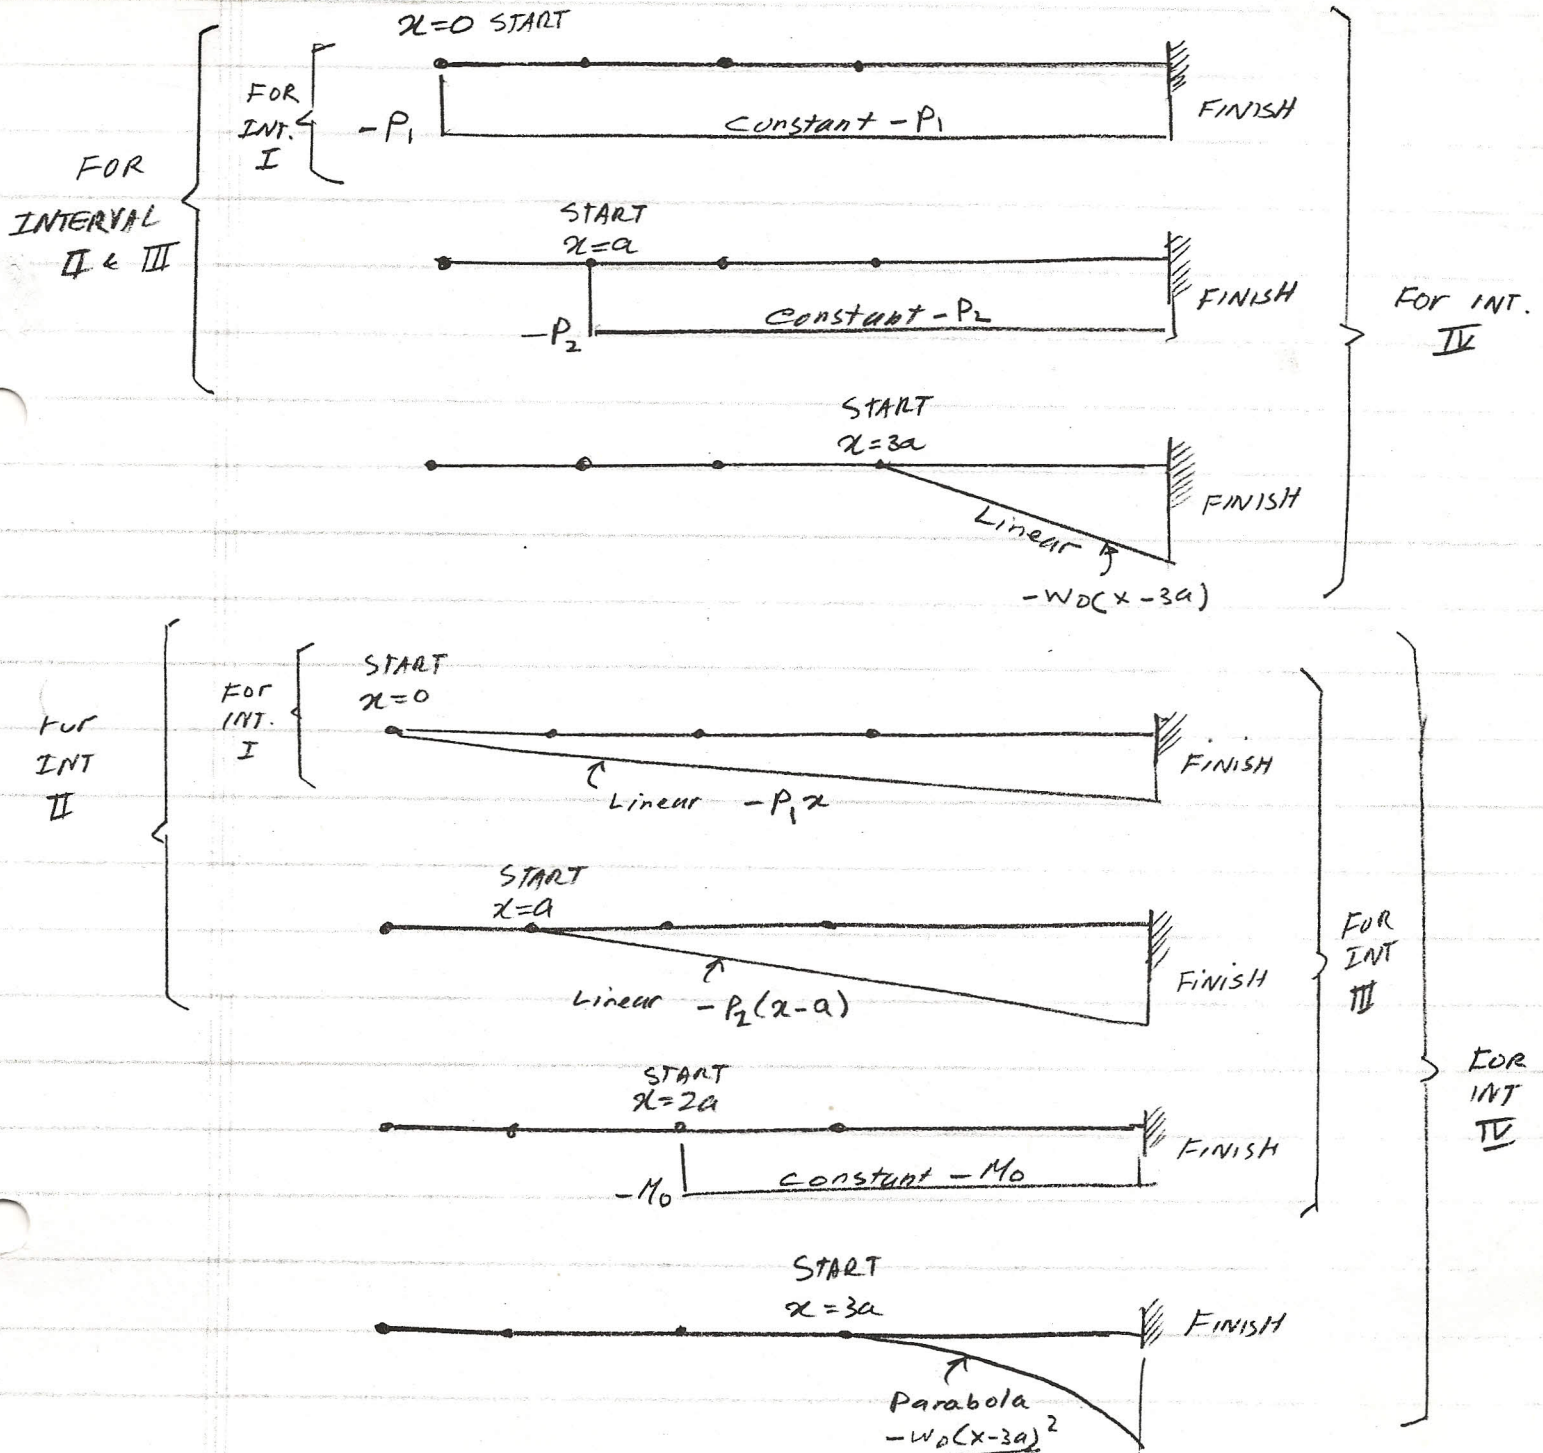 x=0 START
FOR
INT.
I
-P₁
constant -P₁
FINISH
FOR
INTERVAL
II & III
START
x=a
-P₂
constant -P₂
FINISH
FOR INT.
IV
START
x=3a
Linear
FINISH
-W₀(x-3a)
START
x=0
FOR
INT.
I
FOR
INT
II
Linear -P₁x
FINISH
START
x=a
Linear -P₂(x-a)
FINISH
FOR
INT
III
START
x=2a
-M₀
constant -M₀
FINISH
FOR
INT
IV
START
x=3a
FINISH
Parabola
-W₀(x-3a)²